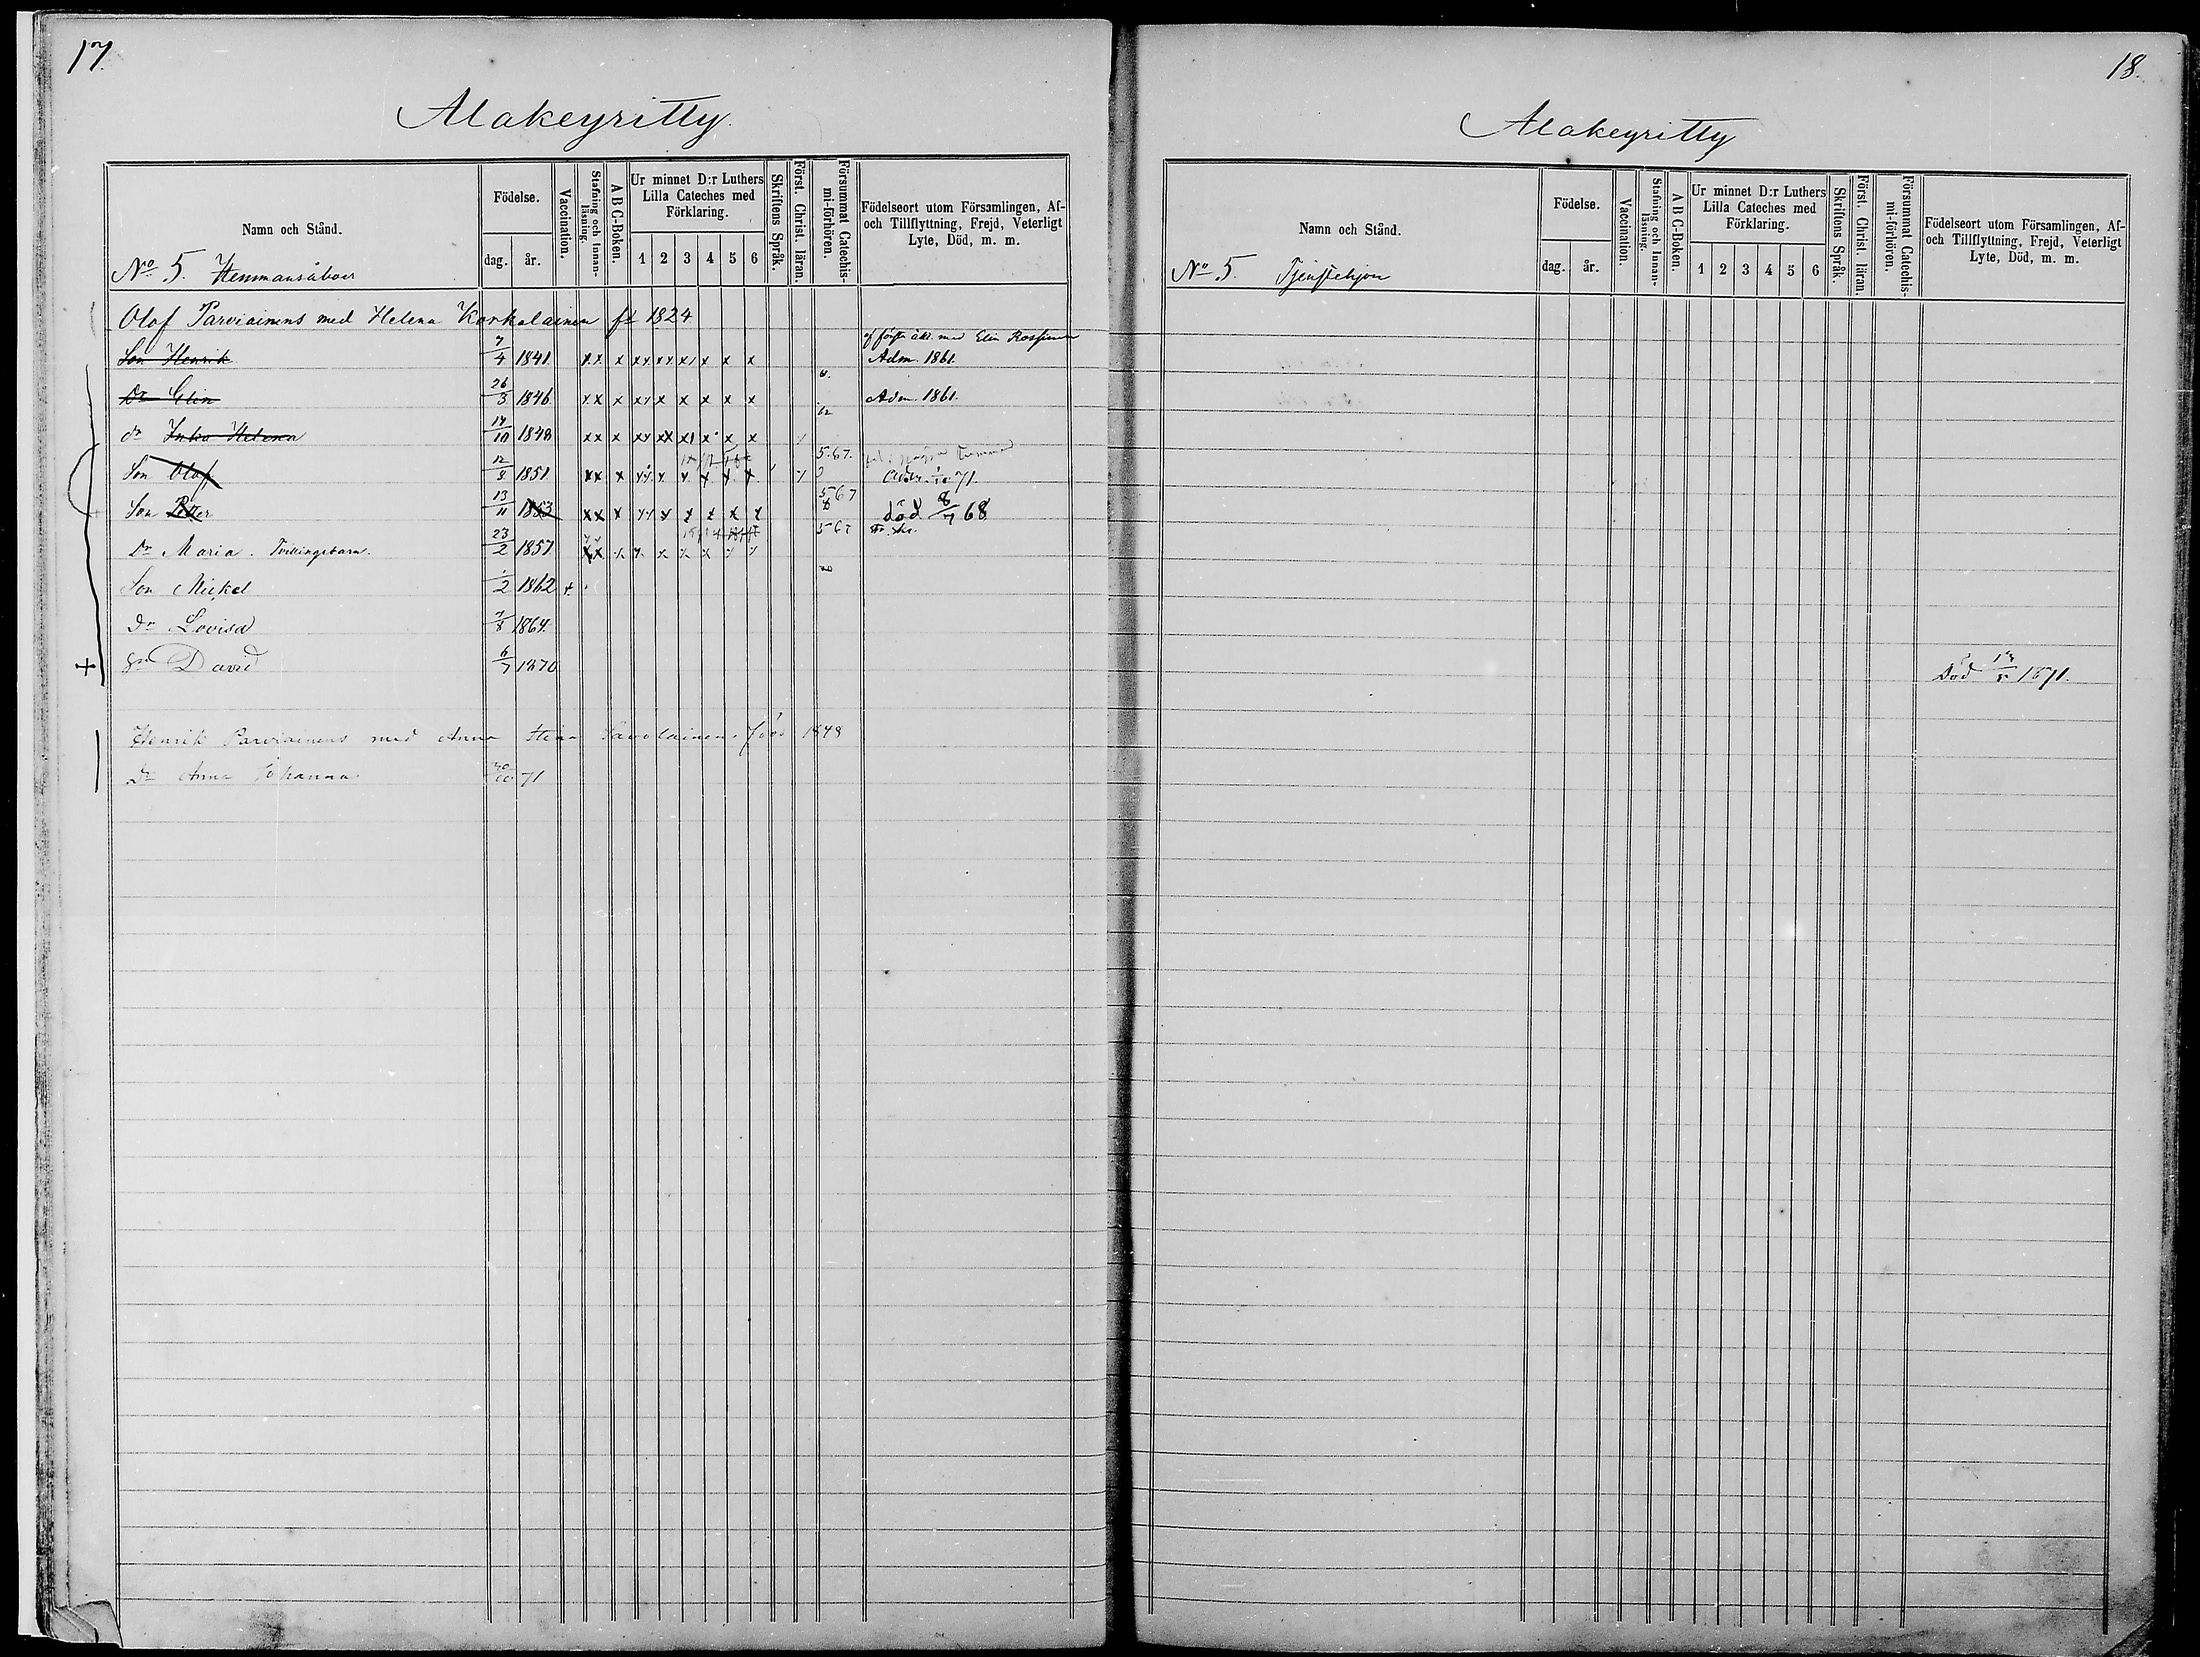 17.
Alakeyritty.
Namn och Stånd.
Födelse.
dag. år.
Vaccination.
Stafning och Innan-läsning.
A B C-Boken.
Ur minnet D:r Luthers
Lilla Cateches med
Förklaring.
1 2 3 4 5 6
Skriftens Språk.
Först. Christ. läran.
Försummat Catechis-mi-förhören.
Födelseort utom Församlingen, Af-
och Tillflyttning, Frejd, Veterligt
Lyte, Död, m. m.
No 5. Hemmansåboer
Olof Parviainens med Helena Korkalainen fd 1824
Son Henrik 7/4 1841. xx x xx xx x x x x Adm. 1861.
Dr Elin 26/3 1846 xx x xx x x x x x Adm. 1861.
dr Inka Helena 1848 xx x xx xx x x x x
Son Olof 12/8 1851. xx x 5.67. 71.
Son Petter 13/11 1853 xx x 567 död 8/7 68
Dr Maria. Tvillingsbarn. 23/2 1857 xx 567
Son Mickel 1/2 1862
Dr Lovisa 7/8 1864.
Sn David 6/7 1870
Henrik Parviainens med Anna Stina Savolainen född 1848
Dr Anna Johanna 30/10 71
18.
Alakeyritty
Namn och Stånd.
Födelse.
dag. år.
Vaccination.
Stafning och Innan-läsning.
A B C-Boken.
Ur minnet D:r Luthers
Lilla Cateches med
Förklaring.
1 2 3 4 5 6
Skriftens Språk.
Först. Christ. läran.
Försummat Catechis-mi-förhören.
Födelseort utom Församlingen, Af-
och Tillflyttning, Frejd, Veterligt
Lyte, Död, m. m.
No 5. Tjenstehjon
Död 1871.